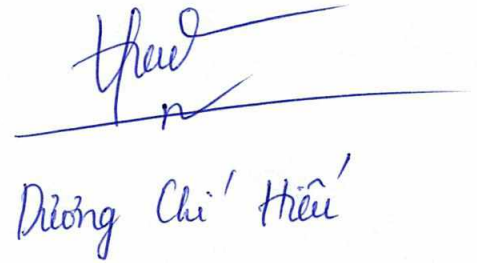 Dương Chí Hiếu